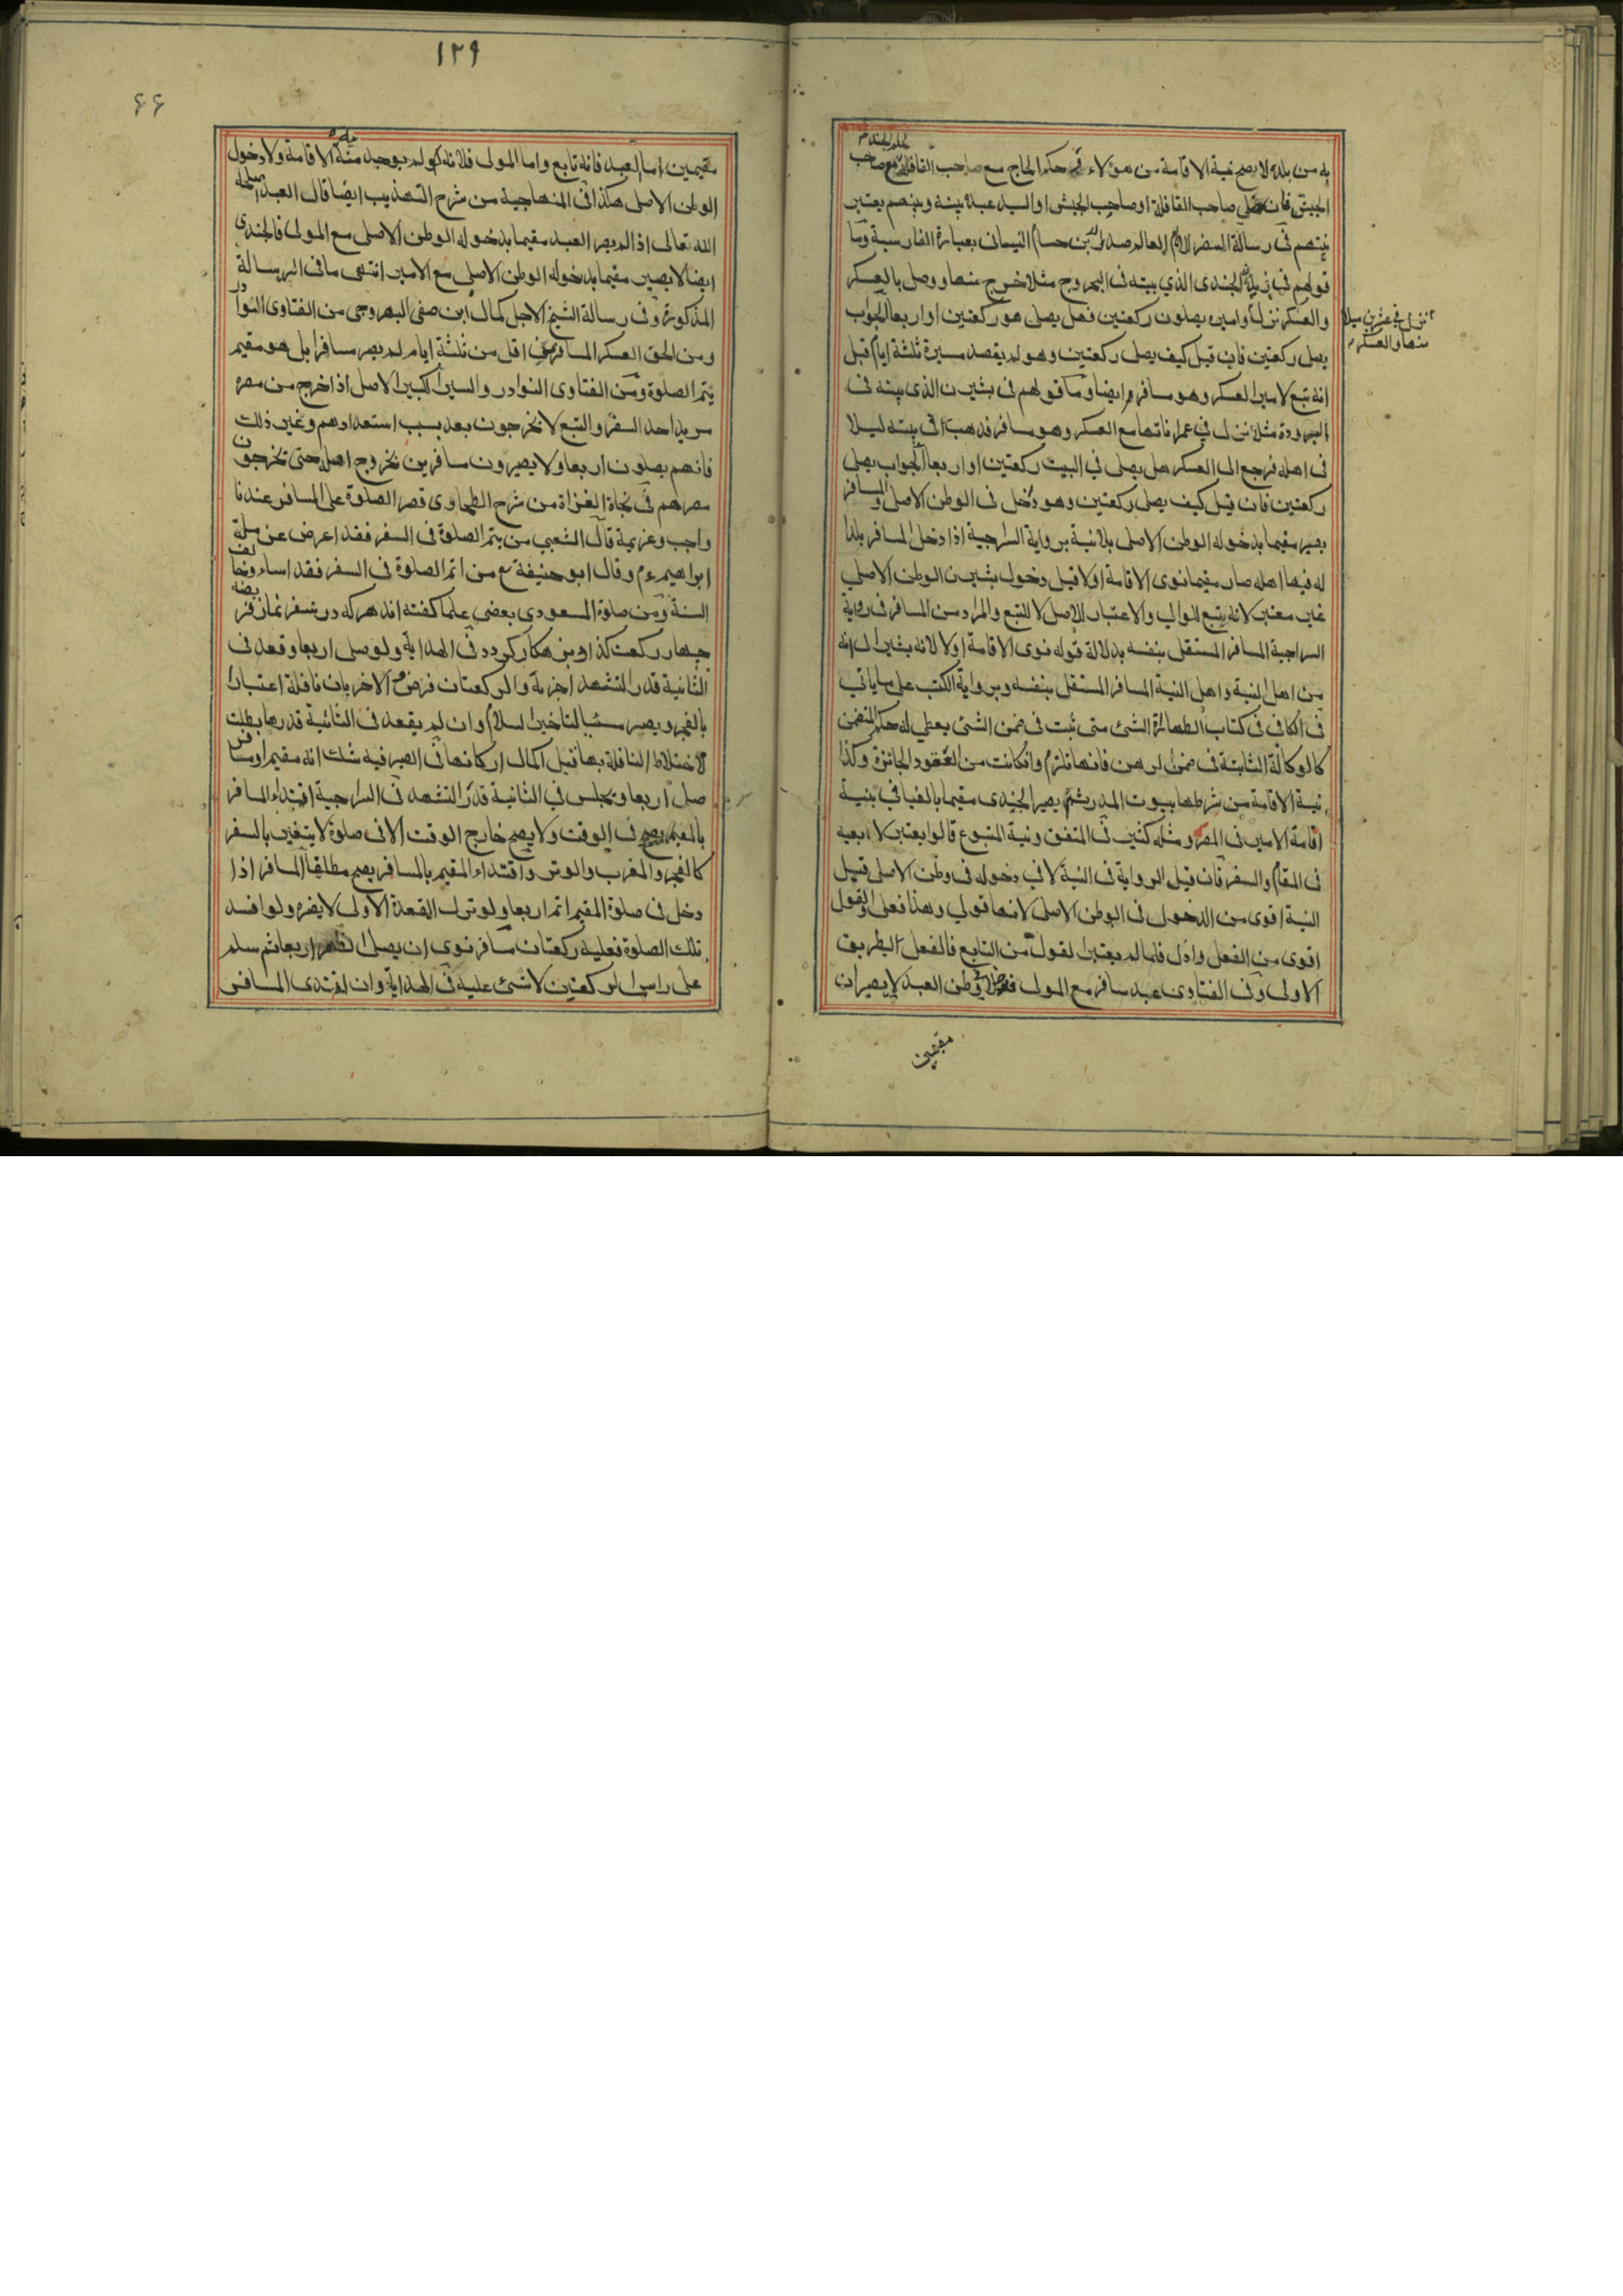 به من بلده لا يصح نية الاقامة من هؤلاء في حكم الحاج مع صاحب القافلة مع صاحب
الجيش فان صلى صاحب القافلة او صاحب الجيش او السيد عبده بينه وبينهم يعتبر
نيتهم في رسالة السفر للامام العالم صدر بن حسام النيساني بعبارة الفارسية وما
قولهم في الجندي الذي بيته في البهروج مثلا خرج منها ووصل بالعسكر
نزل في عشرين ميلا
منها والعسكر
والعسكر نزلت واميره يصلون ركعتين فهل يصلى هو ركعتين او اربعا الجواب
يصلى ركعتين فان قيل كيف يصلى ركعتين وهو لم يقصد مسيرة ثلثة ايام قيل
انه تبع لامير العسكر وهو مسافر وايضا وما قولهم في الذي بيته في
مثلا نزل في مع العسكر وهو مسافر فذهب الى بيته ليلا
في اهله فرجع الى العسكر هل يصلى في البيت ركعتين او اربعا الجواب يصلى
ركعتين فان قيل كيف يصلى ركعتين وهو دخل في الوطن الاصلى والمسافر
يصير مقيما بدخوله الوطن الاصلى بلا نية برواية السراجية اذا دخل المسافر بلدا
له فيها اهله صار مقيما نوى الاقامة اولا قيل دخول الوطن الاصلى
غير معتبر لانه يتبع للوالي والاعتبار للاصل لا للتبع والمراد من المسافر في رواية
السراجية المسافر المستقل بنفسه بدلالة قوله نوى الاقامة اولا لانه يشير الى انه
من اهل النية واهل النية المسافر المستقل بنفسه وبرواية الكتب على ما ياتي
في الكافي في كتاب الطهارة الشئ متى ثبت في ضمن الشئ يعطى له حكم المتضمن
كالوكالة الثابتة في ضمن الرهن فانها تلزم وانكانت من العقود الجائزة وكذا
نية الاقامة من شرطها بيوت المدر ثم يصير الجندي مقيما بالفيافي بنية
اقامة الامير في المصر ومثله كثير في المتفق ونية المتبوع قالوا يعتبر لا تابعيه
في المقام والسفر فان قيل الرواية في النية لا في دخوله في وطن الاصلى قيل
النية اقوى من الدخول في الوطن الاصلى لانها قولي وهذا فعلى والقول
اقوى من الفعل وادل فلما لم يعتبر القول من التابع فالفعل بالطريق
الاولى وفي الفتاوى عبد سافر مع المولى وطن العبد لا يصيران
مقيمين
١٢٩
۶۶
مقيمين اما العبد فانه تابع واما المولى فلانه لم يوجد منه الاقامة ولا دخول
الوطن الاصلى هكذا في المنهاجية من شرح التهذيب ايضا قال العبد اصلحه
الله تعالى اذا لم يصر العبد مقيما بدخوله الوطن الاصلى مع المولى فالجندي
ايضا لا يصير مقيما بدخوله الوطن الاصلى مع الامير انتهى ما في الرسالة
المذكورة وفي رسالة الشيخ الاجل كمال ابن صفى البهروجي من الفتاوى النوادر
ومن الحق العسكر المسافر في اقل من ثلثة ايام لم يصر مسافرا بل هو مقيم
يتم الصلوة ومن الفتاوى النوادر والسير الكبير الاصل اذا خرج من مصره
مريدا حد السفر والتبع لا يخرجون بعد بسبب استعدادهم وغير ذلك
فانهم يصلون اربعا ولا يصيرون مسافرين بخروج اهله حتى يخرجون
مصرهم في نجاة الغزاة من شرح الطحاوى قصر الصلوة على المسافر عندنا
واجب وعزيمة قال الشعبي من يتم الصلوة في السفر فقد اعرض عن ملة
ابراهيم ءم وقال ابو حنيفة رح من اتم الصلوة في السفر فقد اساء وخالف
السنة ومن صلوة المسعودي بعضي علما كفته اند هركه در سفر نماز فريضه
چهار ركعت كذارد بزهكار كردد في الهداية ولو صلى اربعا وقعد في
الثانية قدر التشهد اجزئه والركعتان فرض والاخريان نافلة اعتبارا
بالفجر ويصير مسئيا لتاخير السلام وان لم يقعد في الثانية قدرها بطلت
لاختلاط النافلة بها قبل اكمال اركانها في الصيرفية شك انه مقيم او مسافر
صلى اربعا ويجلس في الثانية قدر التشهد في السراجية اقتداء المسافر
بالمقيم يصح في الوقت ولا يصح خارج الوقت الا في صلوة لا يتغير بالسفر
كالفجر والمغرب والوتر واقتداء المقيم بالمسافر يصح مطلقا المسافر اذا
دخل في صلوة المقيم اتم اربعا ولو ترك القعدة الاولى لا يضره ولو افسد
تلك الصلوة فعليه ركعتان مسافر نوى ان يصلى الظهر اربعا ثم سلم
على راس الركعتين لا شئ عليه في الهداية وان اقتدى المسافر